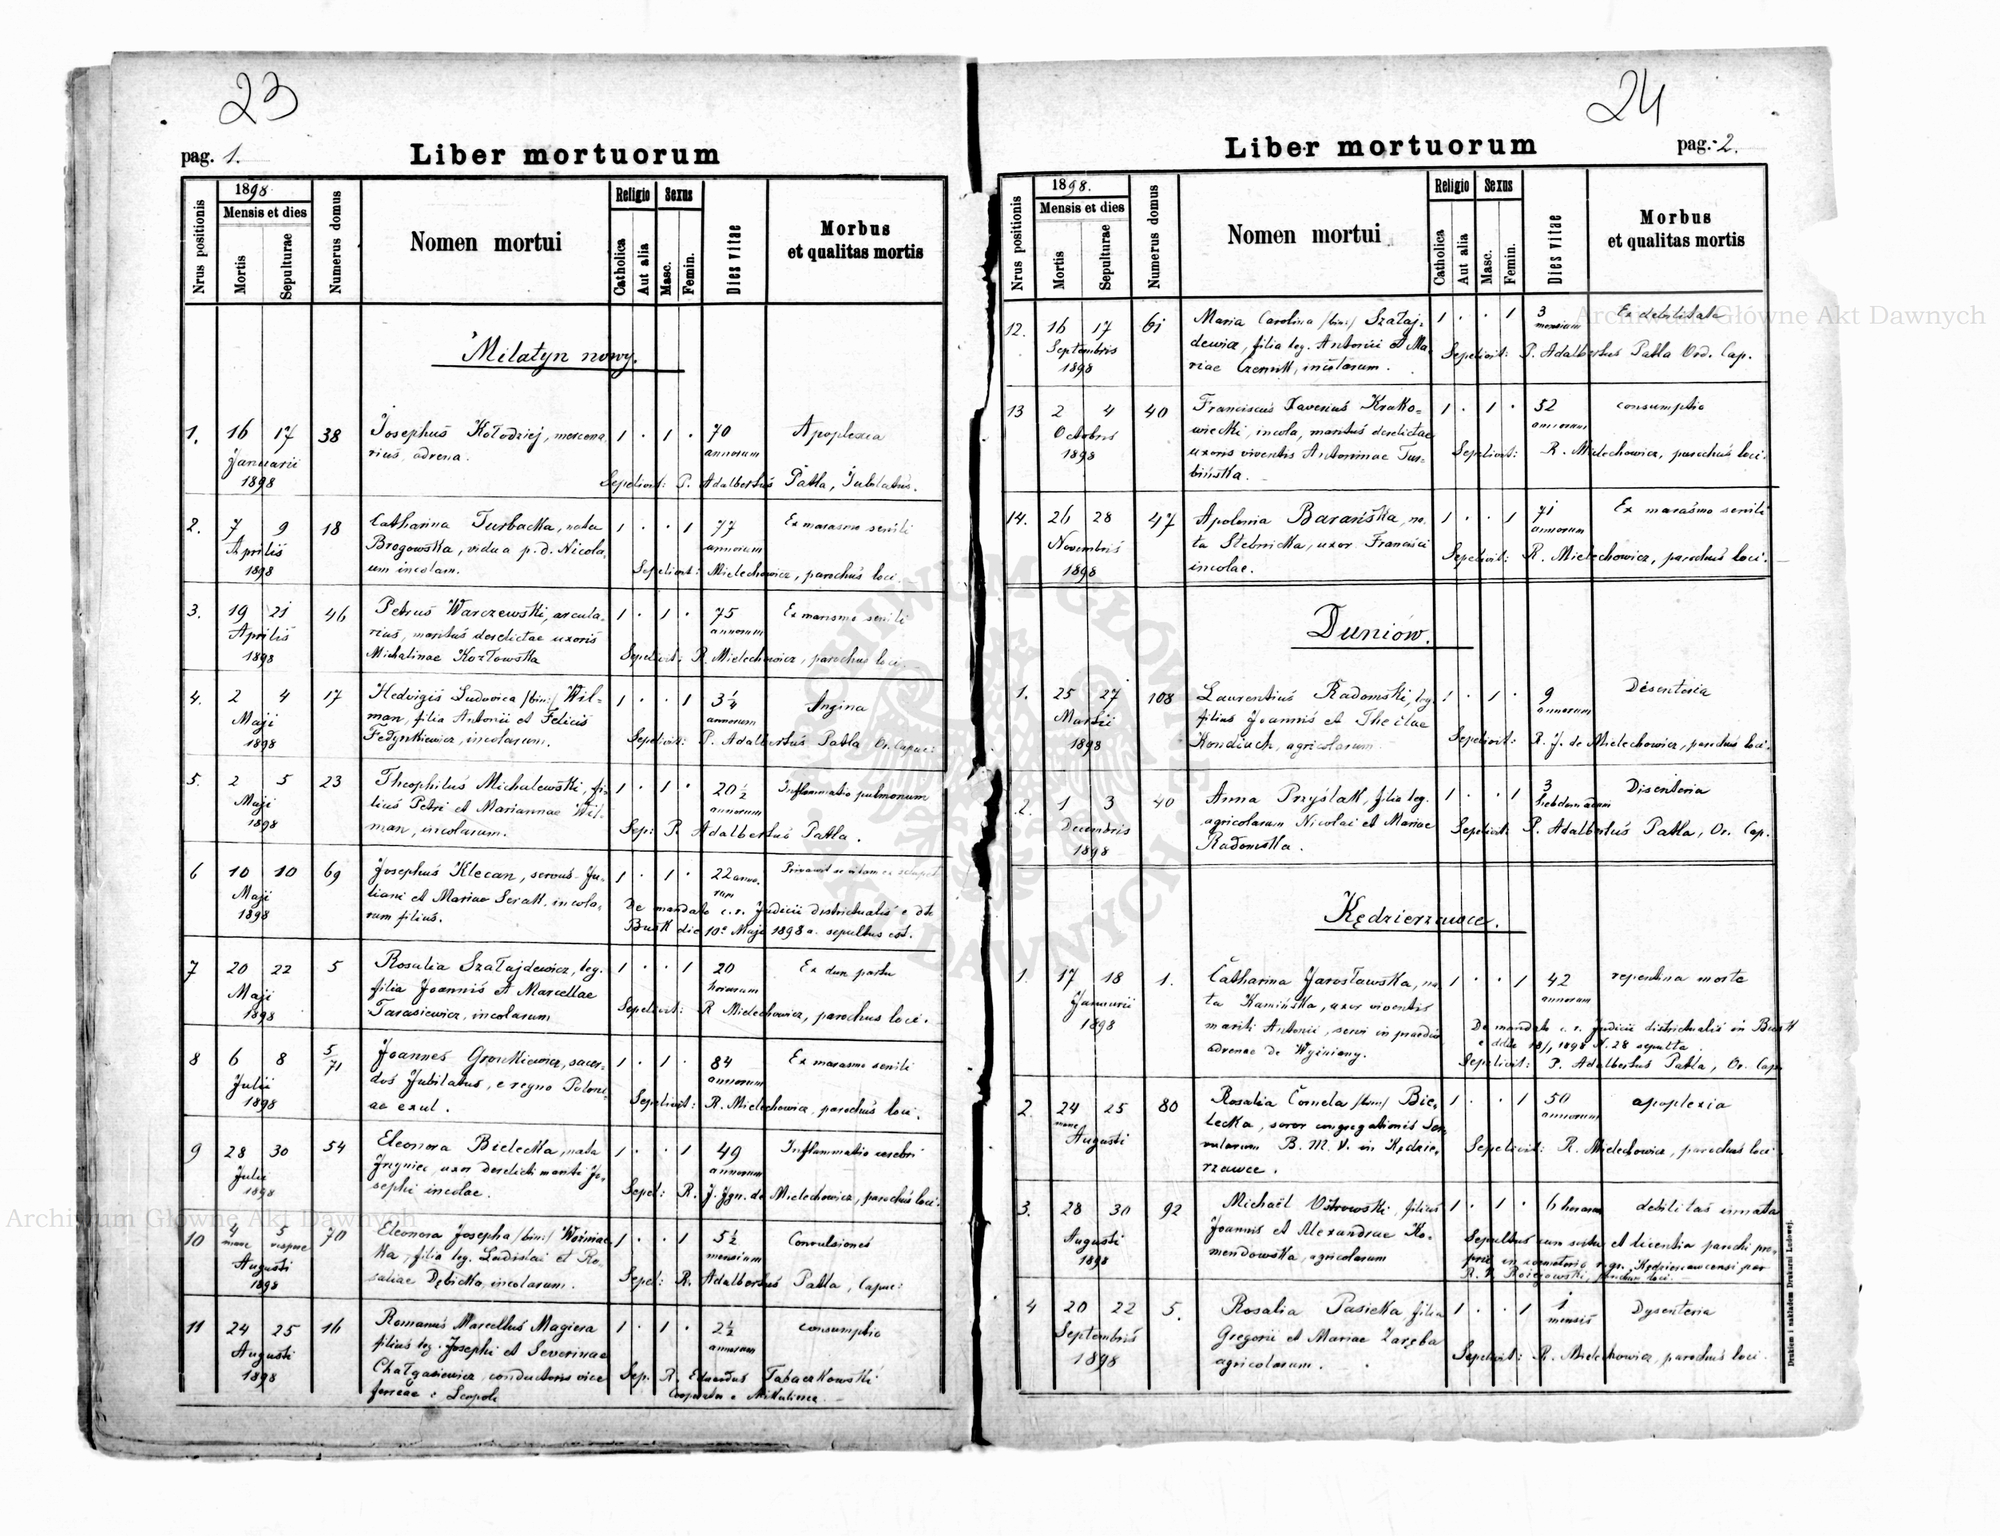 23
pag. 1.
Liber mortuorum
Nrus positionis
1898
Mensis et dies
Mortis
Sepulturae
Numerus domus
Nomen mortui
Religio
Catholica
Aut alia
Sexus
Masc.
Femin.
Dies vitae
Morbus
et qualitas mortis
Milatyn nowy.
1. 16 17 38 Josephus Kołodziej, mercena- 1 · 1 · 70 Apoplexia
Januarii rius, advena. annorum
1898 Sepelivit: P. Adalbertus Patla, Jubilatus.
2. 7 9 18 Catharina Turbacka, nata 1 · · 1 77 Ex marasmo senili
Aprilis Brogowska, vidua p. d. Nicola- annorum
1898 um incolam. Sepelivit: Mielechowicz, parochus loci.
3. 19 21 46 Petrus Warczewski, arcula- 1 · 1 · 75 Ex marasmo senili
Aprilis rius, maritus derelictae uxoris annorum
1898 Michalinae Kozłowska Sepelivit: R. Mielechowicz, parochus loci.
4. 2 4 17 Hedvigis Ludovica /bin:/ Wil- 1 · · 1 3 1/4 Angina
Maji man, filia Antonii et Felicis annorum
1898 Fedynkiewicz, incolarum. Sepelivit: P. Adalbertus Patla Or. Capuc:
5. 2 5 23 Theophilus Michalewski, fi- 1 · 1 · 20 1/2 Inflammatio pulmonum
Maji lius Petri et Mariannae Wil- annorum
1898 man, incolarum. Sep: R Adalbertus Patla.
6 10 10 69 Josephus Klecan, servus Ju- 1 · 1 · 22 anno- Privavit se vitam
Maji liani et Mariae Serak incola- rum
1898 rum filius. De mandato c. r. Judicii districtualis e dto
Busk die 10º Maji 1898 a. sepultus est.
7 20 22 5 Rosalia Szałajdewicz, leg. 1 · · 1 20 Ex duro partu
Maji filia Joannis et Marcellae horarum
1898 Tarasiewicz, incolarum Sepelivit: R Mielechowicz, parochus loci.
8 6 8 5/71 Joannes Gronkiewicz, sacer- 1 · 1 · 84 Ex marasmo senili
Julii dos Jubilatus, e regno Poloni- annorum
1898 ae exul. Sepelivit: R. Mielechowicz, parochus loci.
9 28 30 54 Eleonora Bielecka, nata 1 · · 1 49 Inflammatio cerebri
Julii uxor derelicti mariti Jo- annorum
1898 sephi incolae. Sepel: R. J. Ign. de Mielechowicz, parochus loci.
10 4 5 70 Eleonora Josepha /bin:/ Woźniac- 1 · · 1 5 1/2 Convulsiones
mane vespere ka, filia leg. Ladislai et Ro- mensium
Augusti saliae Dębicka, incolarum. Sepel: R. Adalbertus Patla, Capuc:
1898
11 24 25 16 Romanus Marcellus Magiera 1 · 1 · 2 1/2 consumptio
Augusti filius leg. Josephi et Severinae annorum
1898 Chałgasiewicz, conductoris viae Sep. R. Eduardus Tabaczkowski
ferreae e Leopoli Cooperator e Mikulince
24
Liber mortuorum
pag. 2.
Nrus positionis
1898.
Mensis et dies
Mortis
Sepulturae
Numerus domus
Nomen mortui
Religio
Catholica
Aut alia
Sexus
Masc.
Femin.
Dies vitae
Morbus
et qualitas mortis
12. 16 17 61 Maria Carolina /bin:/ Szałaj- 1 · · 1 3 Ex debilitate
Septembris dewicz, filia leg. Antonii et Ma- mensium
1898 riae Czernik, incolarum. Sepelivit: P. Adalbertus Patla Ord. Cap.
13 2 4 40 Franciscus Xaverius Krako- 1 · 1 · 52 consumptio
Octobris wiecki, incola, maritus derelictae annorum
1898 uxoris viventis Antoninae Tur- Sepelivit: R. Mielechowicz, parochus loci.
bińska.
14. 26 28 47 Apolonia Barańska, na- 1 · · 1 71 Ex marasmo senili
Novembris ta Stelmicka, uxor Francisci annorum
1898 incolae. Sepelivit: R. Mielechowicz, parochus loci.
Duniów.
1. 25 27 108 Laurentius Radomski, leg. 1 · 1 · 9 Disenteria
Martii filius Joannis et Theclae annorum
1898 Kondiuch, agricolarum Sepelivit: R. J. de Mielechowicz, parochus loci.
2. 1 3 40 Anna Przyślak, filia leg. 1 · · 1 3 Disenteria
Decembris agricolarum Nicolai et Mariae hebdomadum
1898 Radomska. Sepelivit: P. Adalbertus Patla, Or. Cap.
Kędzierzawce.
1. 17 18 1. Catharina Jarosławska, na- 1 · · 1 42 repentina morte
Januarii ta Kamińska, uxor viventis annorum
1898 mariti Antonii, servi in praedio De mandato c. r. Judicii districtualis in Busk
advenae de Wyżniany. e ddto 18/1 1898 N. 28 sepulta.
Sepelivit: P. Adalbertus Patla, Or. Cap.
2. 24 25 80 Rosalia Cornela /bin:/ Bie- 1 · · 1 50 apoplexia
mane lecka, soror congregationis Ser- annorum
Augusti vularum B. M. V. in Kędzie- Sepelivit: R. Mielechowicz, parochus loci
rzawce.
3. 28 30 92 Michaël Ostrowski, filius 1 · 1 · 6 horarum debilitas innata
Augusti Joannis et Alexandrae Ko- Sepultus cum scitu et licentia parochi pro-
1898 mendowska, agricolarum prii in coemeterio r. gr. Kędzierzawcensi per
R. P. parochum loci.
4 20 22 5. Rosalia Pasicka filia 1 · · 1 1 Dysenteria
Septembris Gregorii et Mariae Zaręba mensis
1898 agricolarum. Sepelivit: R. Mielechowicz, parochus loci.
Drukiem i nakładem Drukarni Ludowej.
Archiwum Główne Akt Dawnych
Archiwum Główne Akt Dawnych
ARCHIWUM GŁÓWNE AKT DAWNYCH